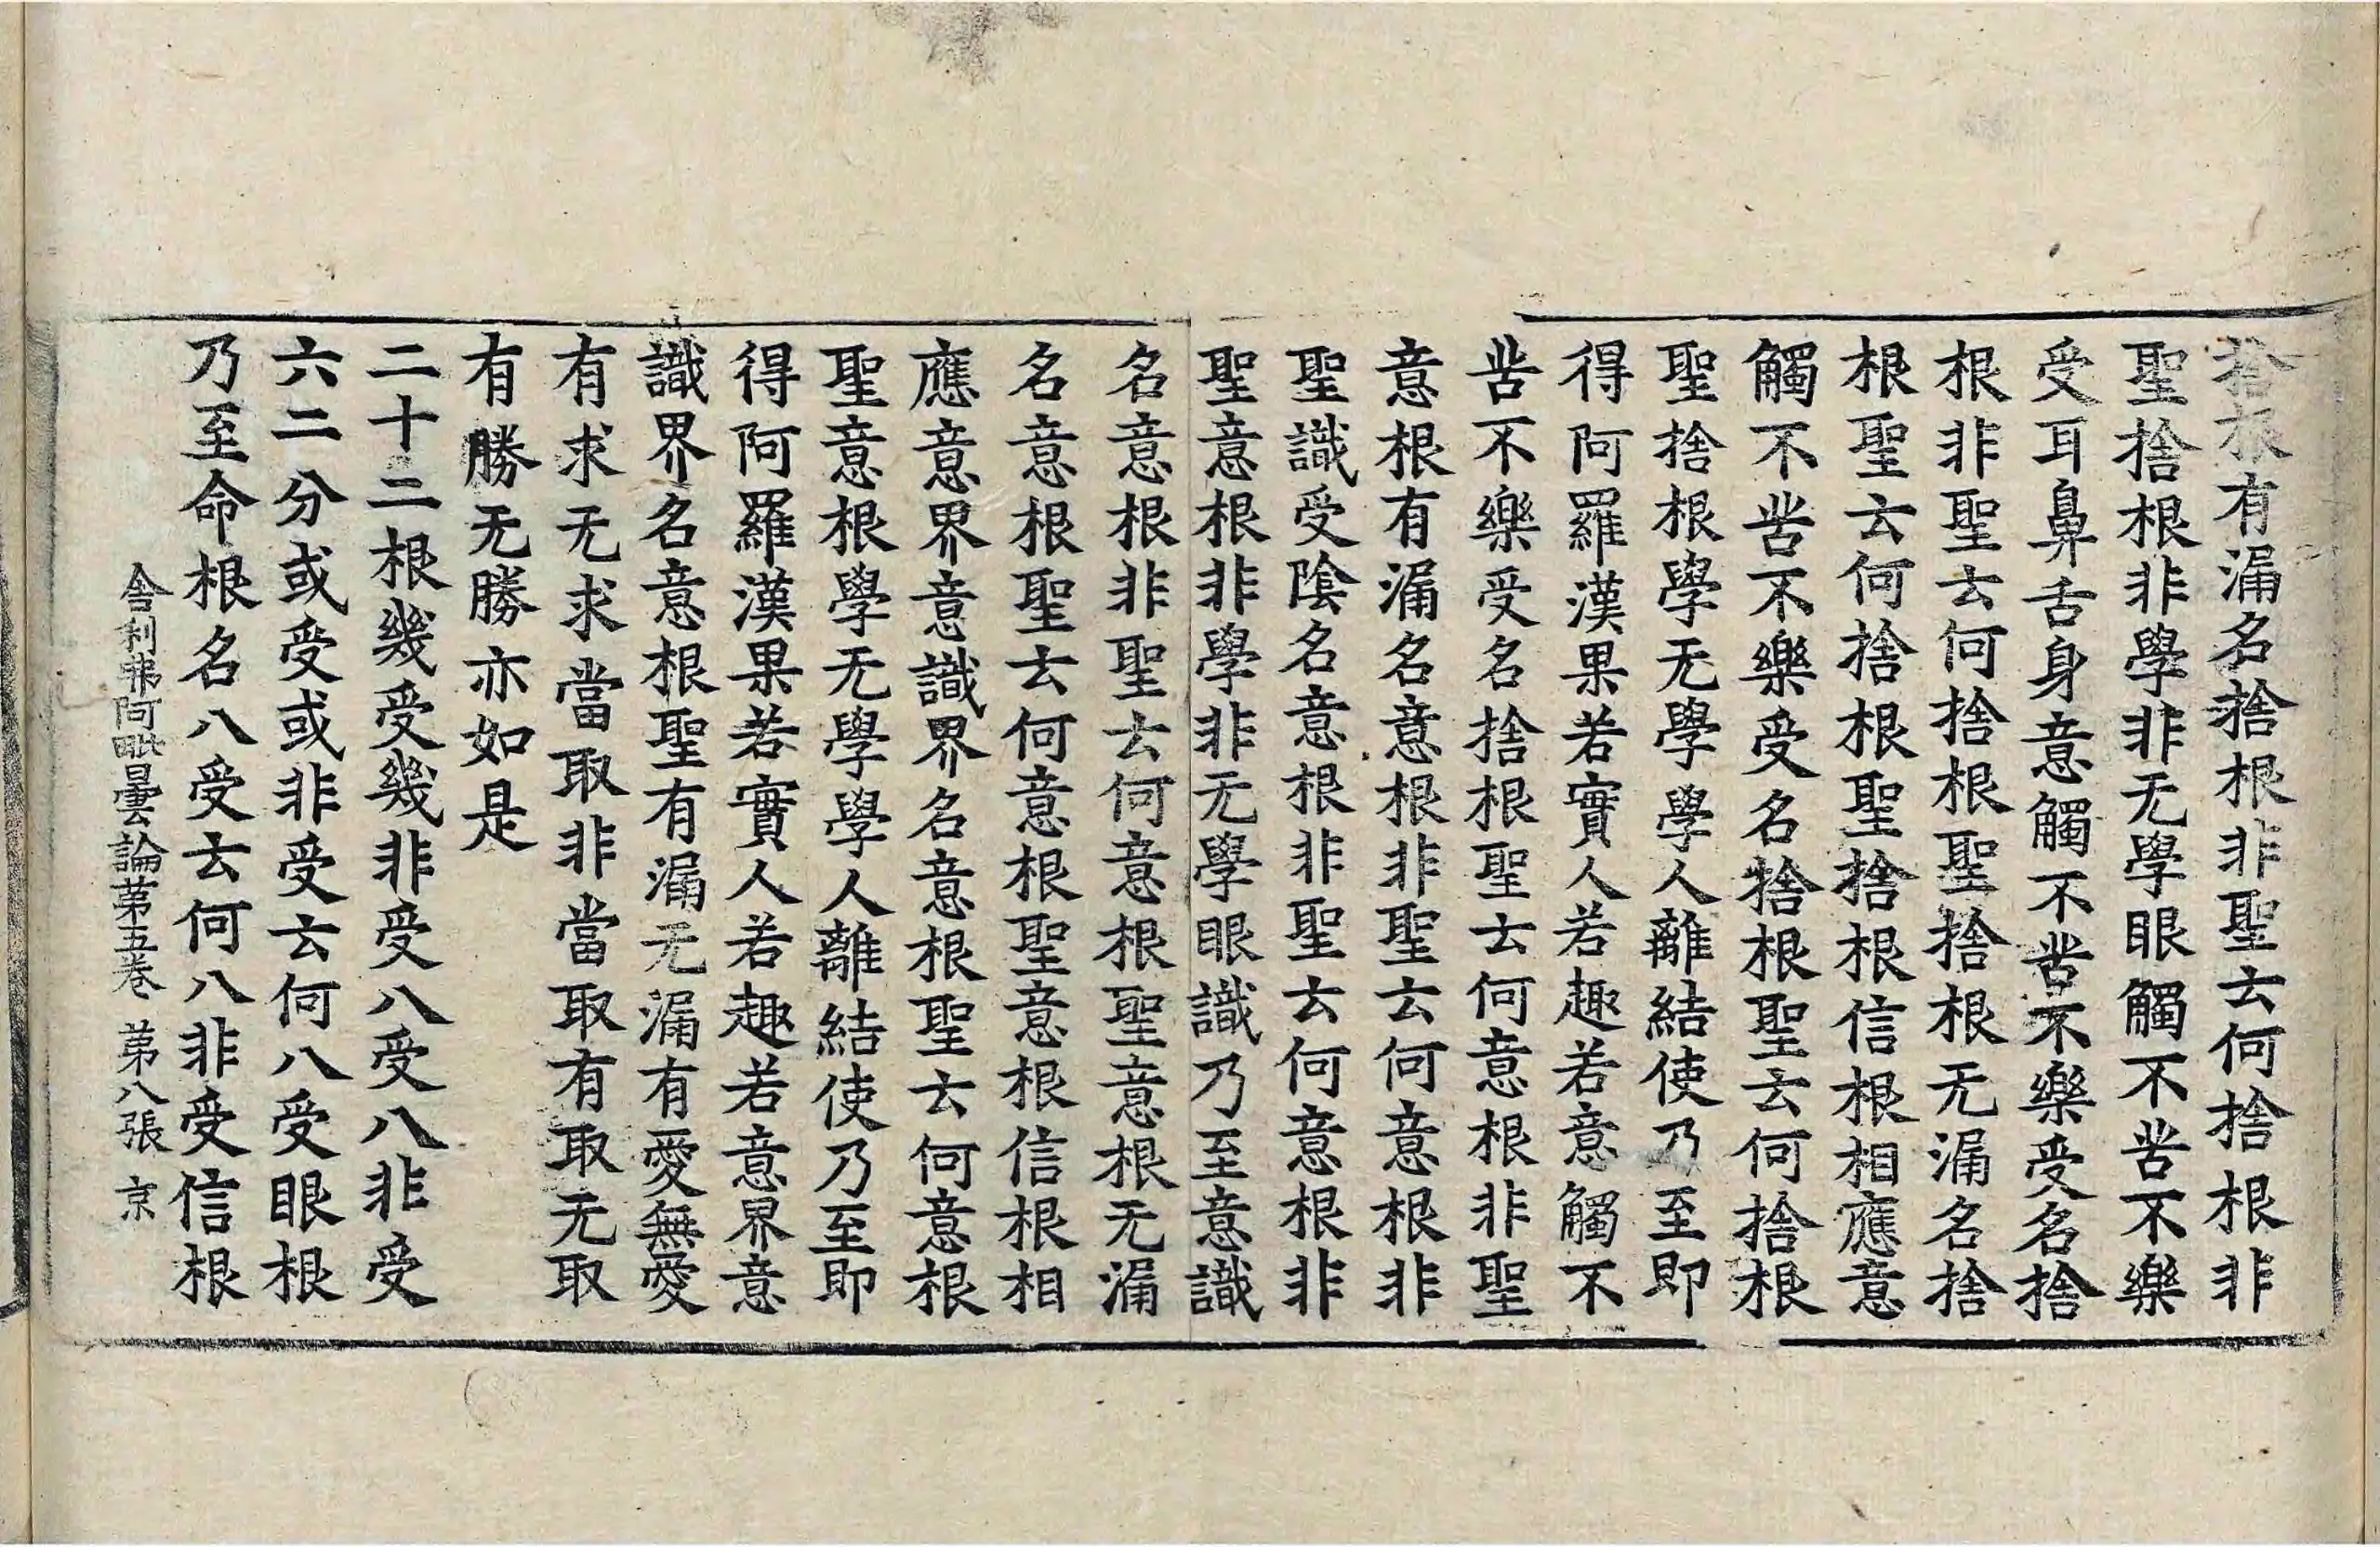 捨根有漏名捨根非聖云何捨根非
聖捨根非學非无學眼觸不苦不樂
受耳鼻舌身意觸不苦不樂受名捨
根非聖云何捨根聖捨根无漏名捨
根聖云何捨根聖捨根信根相應意
觸不苦不樂受名捨根聖云何捨根
聖捨根學无學學人離結使乃至即
得阿羅漢果若實人若趣若意觸不
苦不樂受名捨根聖云何意根非聖
意根有漏名意根非聖云何意根非
聖識受陰名意根非聖云何意根非
聖意根非學非无學眼識乃至意識
名意根非聖云何意根聖意根无漏
名意根聖云何意根聖意根信根相
應意界意識界名意根聖云何意根
聖意根學无學學人離結使乃至即
得阿羅漢果若實人若趣若意界意
識界名意根聖有漏无漏有愛無愛
有求无求當取非當取有取无取
有勝无勝亦如是
二十二根幾受幾非受八受八非受
六二分或受或非受云何八受眼根
乃至命根名八受云何八非受信根
舍利弗阿毗曇論第五卷 第八張 京